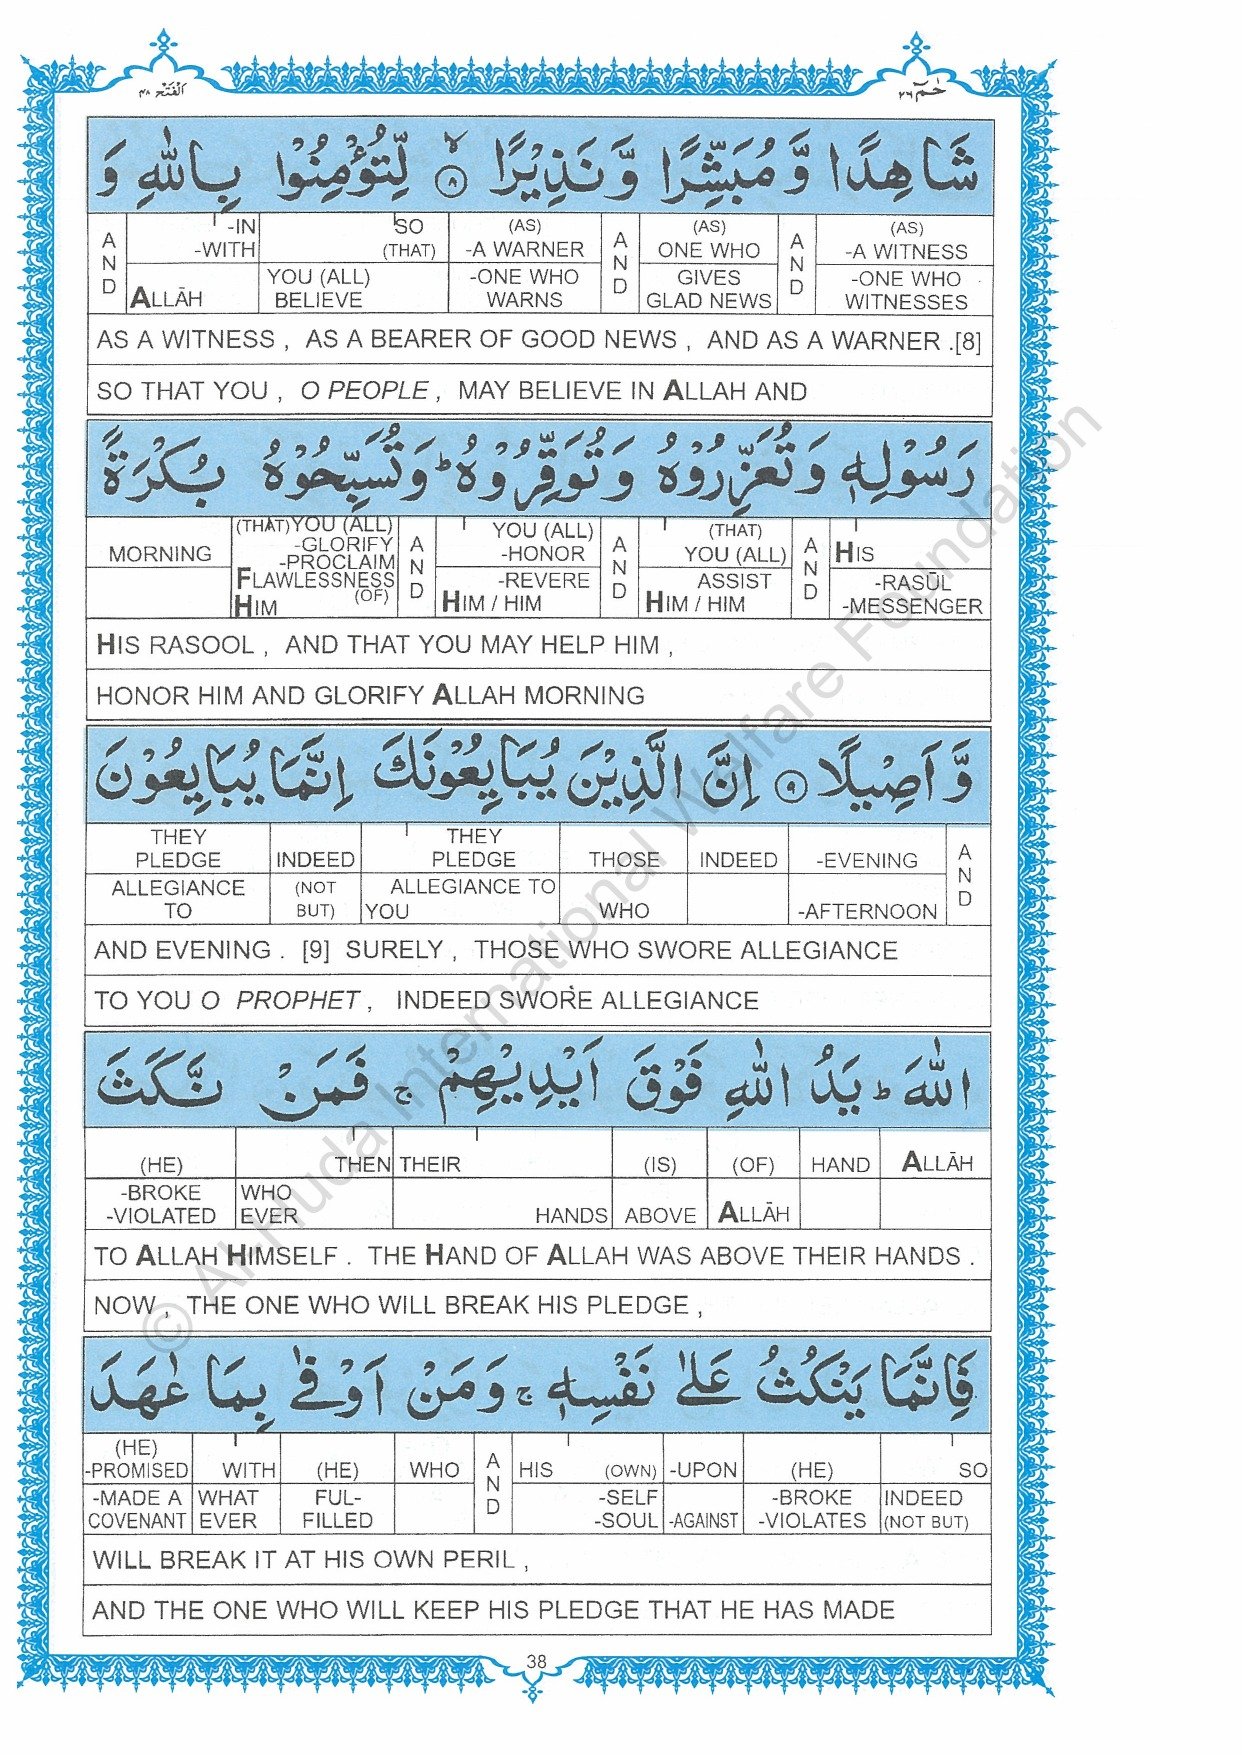 اَلْفَتْح ٤٨
حٰمٓ ٢٦
شَاهِدًا وَّ مُبَشِّرًا وَّ نَذِيْرًا ۙ ٨ لِّتُؤْمِنُوْا بِاللّٰهِ وَ
A N D
-IN -WITH ALLĀH
SO (THAT) YOU (ALL) BELIEVE
(AS) -A WARNER -ONE WHO WARNS
A N D
(AS) ONE WHO GIVES GLAD NEWS
A N D
(AS) -A WITNESS -ONE WHO WITNESSES
AS A WITNESS , AS A BEARER OF GOOD NEWS , AND AS A WARNER .[8]
SO THAT YOU , O PEOPLE , MAY BELIEVE IN ALLAH AND
رَسُوْلِهٖ وَ تُعَزِّرُوْهُ وَ تُوَقِّرُوْهُ ؕ وَ تُسَبِّحُوْهُ بُكْرَةً
MORNING
(THAT) YOU (ALL) -GLORIFY -PROCLAIM FLAWLESSNESS (OF) HIM
A N D
YOU (ALL) -HONOR -REVERE HIM / HIM
A N D
(THAT) YOU (ALL) ASSIST HIM / HIM
A N D
HIS -RASŪL -MESSENGER
HIS RASOOL , AND THAT YOU MAY HELP HIM ,
HONOR HIM AND GLORIFY ALLAH MORNING
وَّ اَصِيْلًا ٩ اِنَّ الَّذِيْنَ يُبَايِعُوْنَكَ اِنَّمَا يُبَايِعُوْنَ
THEY PLEDGE ALLEGIANCE TO
INDEED (NOT BUT)
THEY PLEDGE ALLEGIANCE TO YOU
THOSE WHO
INDEED
-EVENING -AFTERNOON
A N D
AND EVENING . [9] SURELY , THOSE WHO SWORE ALLEGIANCE
TO YOU O PROPHET , INDEED SWORE ALLEGIANCE
اللّٰهَ ؕ يَدُ اللّٰهِ فَوْقَ اَيْدِيْهِمْ ۚ فَمَنْ نَّكَثَ
(HE) -BROKE -VIOLATED
THEN WHO EVER
THEIR HANDS
(IS) ABOVE
(OF) ALLĀH
HAND
ALLĀH
TO ALLAH HIMSELF . THE HAND OF ALLAH WAS ABOVE THEIR HANDS .
NOW , THE ONE WHO WILL BREAK HIS PLEDGE ,
فَاِنَّمَا يَنْكُثُ عَلٰى نَفْسِهٖ ۚ وَ مَنْ اَوْفٰى بِمَا عٰهَدَ
(HE) -PROMISED -MADE A COVENANT
WITH WHAT EVER
(HE) FUL- FILLED
WHO
A N D
HIS (OWN) -SELF -SOUL
-UPON -AGAINST
(HE) -BROKE -VIOLATES
SO INDEED (NOT BUT)
WILL BREAK IT AT HIS OWN PERIL ,
AND THE ONE WHO WILL KEEP HIS PLEDGE THAT HE HAS MADE
38
© Al-Huda International Welfare Foundation